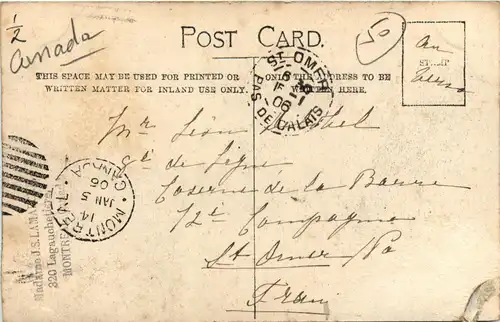 1/2
Canada
POST CARD.
THIS SPACE MAY BE USED FOR PRINTED OR
WRITTEN MATTER FOR INLAND USE ONLY.
ONLY THE ADDRESS TO BE
WRITTEN HERE.
ST OMER
PAS DE CALAIS
06
50
STAMP
au
verso
Mr Léon
de Ligne
Caserne de la Barre
12e Compagnie
St Omer
MONTREAL
CANADA
14
JAN 5
06
Madame J. S. LAMA
320 Lagauchetiere
MONTRE